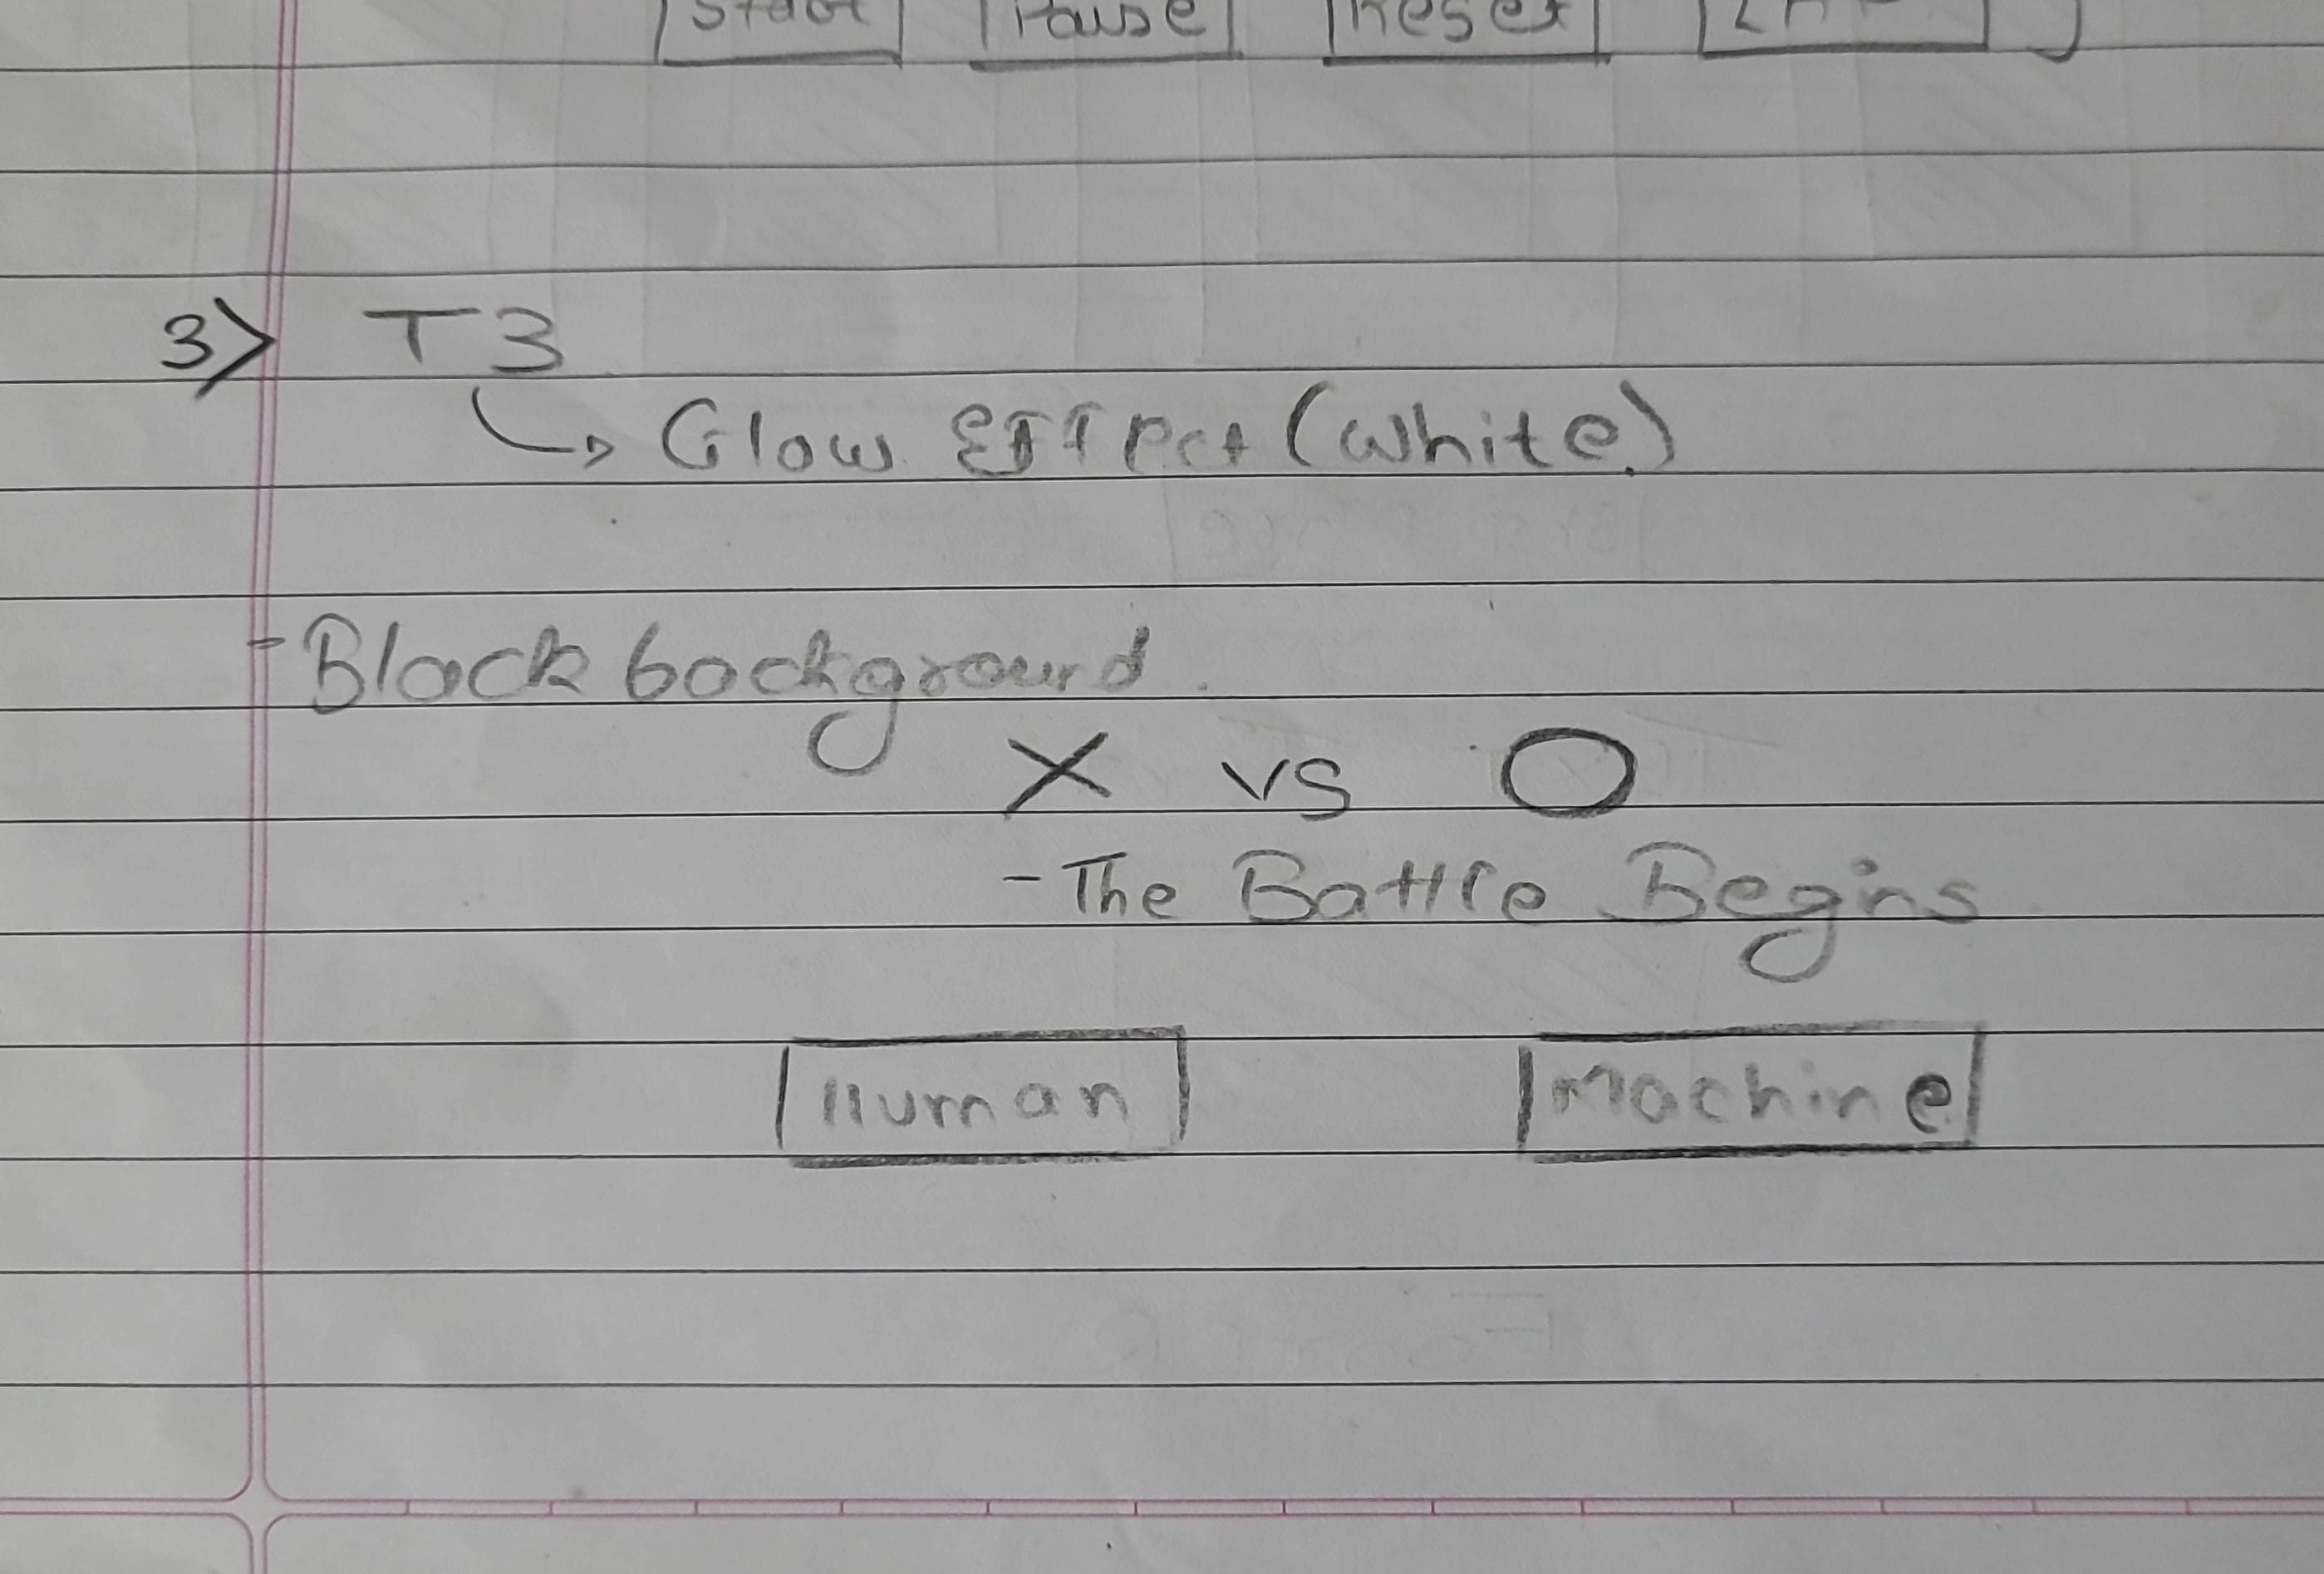 Pause Reset
3> T3
Glow Effect (White)
- Black background.
X vs O
- The Battle Begins
Human Machine